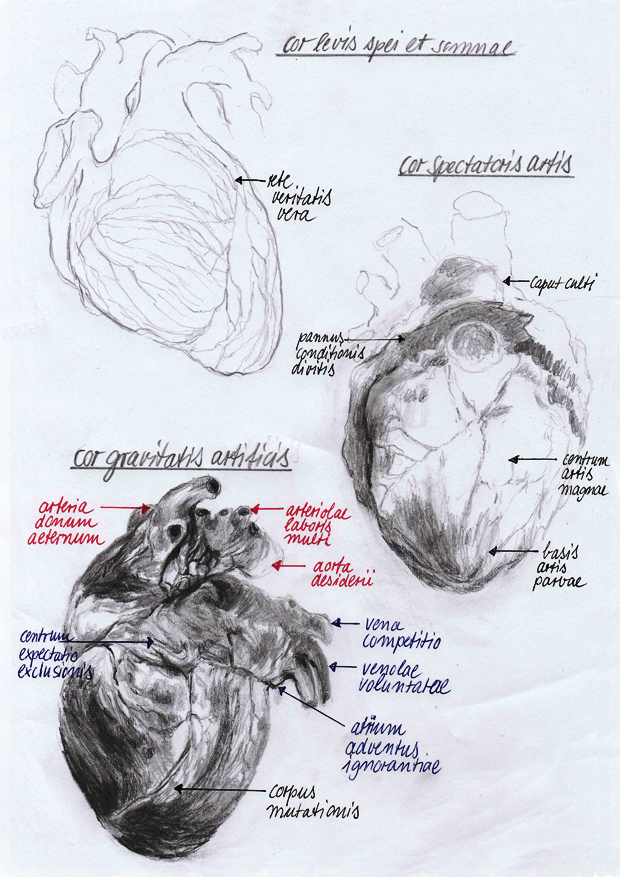 cor levis spei et somnae
rete
veritatis
vera
cor spectatoris artis
caput culti
pannus
conditionis
divitis
centrum
artis
magnae
basis
artis
parvae
cor gravitatis artificis
arteria
donum
aeternum
arteriolae
laboris
multi
aorta
desiderii
centrum
expectatis
exclusionis
vena
competitio
venolae
voluntatae
atrium
adventus
ignorantiae
corpus
mutationis